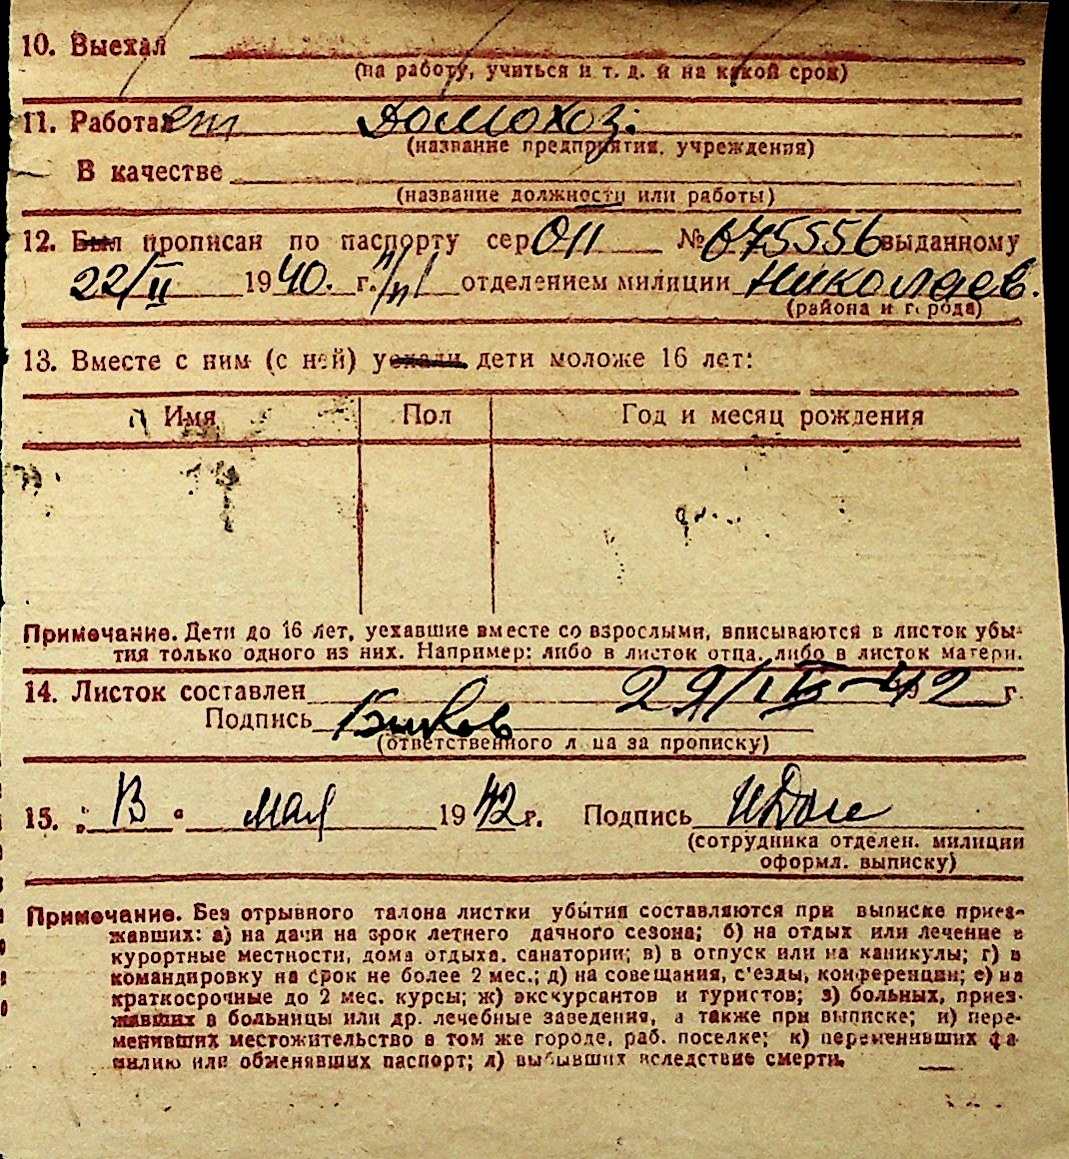 10. Выехал
(на работу, учиться и т. д. и на какой срок)
11. Работает Домохоз.
(название предприятия, учреждения)
В качестве
(название должности или работы)
12. Был прописан по паспорту сер. ОП № 675556 выданному
22/II 1940. г. отделением милиции Николаев.
(района и города)
13. Вместе с ним (с ней) уехали дети моложе 16 лет:
Имя Пол Год и месяц рождения
Примечание. Дети до 16 лет, уехавшие вместе со взрослыми, вписываются в листок убы-
тия только одного из них. Например: либо в листок отца, либо в листок матери.
14. Листок составлен 29/IV-42 г.
Подпись
(ответственного лица за прописку)
15. „ " мая 1942 г. Подпись
(сотрудника отделен. милиции
оформл. выписку)
Примечание. Без отрывного талона листки убытия составляются при выписке приез-
жавших: а) на дачи на срок летнего дачного сезона; б) на отдых или лечение в
курортные местности, дома отдыха, санатории; в) в отпуск или на каникулы; г) в
командировку на срок не более 2 мес.; д) на совещания, с'езды, конференции; е) на
краткосрочные до 2 мес. курсы; ж) экскурсантов и туристов; з) больных, приез-
жавших в больницы или др. лечебные заведения, а также при выписке; и) пере-
менивших местожительство в том же городе, раб. поселке; к) переменивших фа-
милию или обменявших паспорт; л) выбывших вследствие смерти.